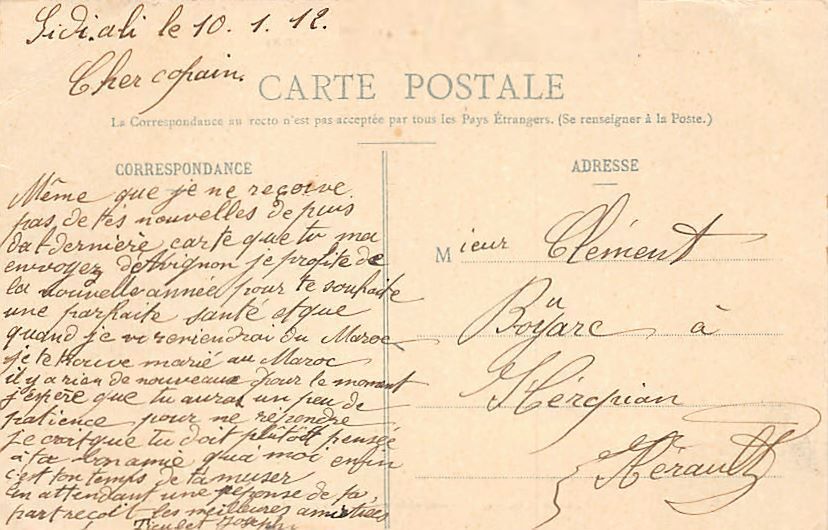 Sidi.ali le 10. 1. 12.
Cher copain.
CARTE POSTALE
La Correspondance au recto n'est pas acceptée par tous les Pays Étrangers. (Se renseigner à la Poste.)
CORRESPONDANCE
Même que je ne reçoive
pas de tes nouvelles depuis
ta dernière carte que tu ma
envoyez d'Avignon je profite de
la nouvelle année pour te souhaite
une parfaite santé et que
quand je vi reviendrai du Maroc
je te trouve marié au Maroc
il y a rien de nouveaux pour le moment
j'espère que tu auras un peu de
patience pour me répondre
je croit que tu doit plutôt pensée
à ta bonamie qua moi enfin
c'est ton temps de ta muser
en attendant une reponse de ta
part reçoit les meilleures amitiées
ADRESSE
Mieur Clément
Boyarc à
Hérépian
Hérault